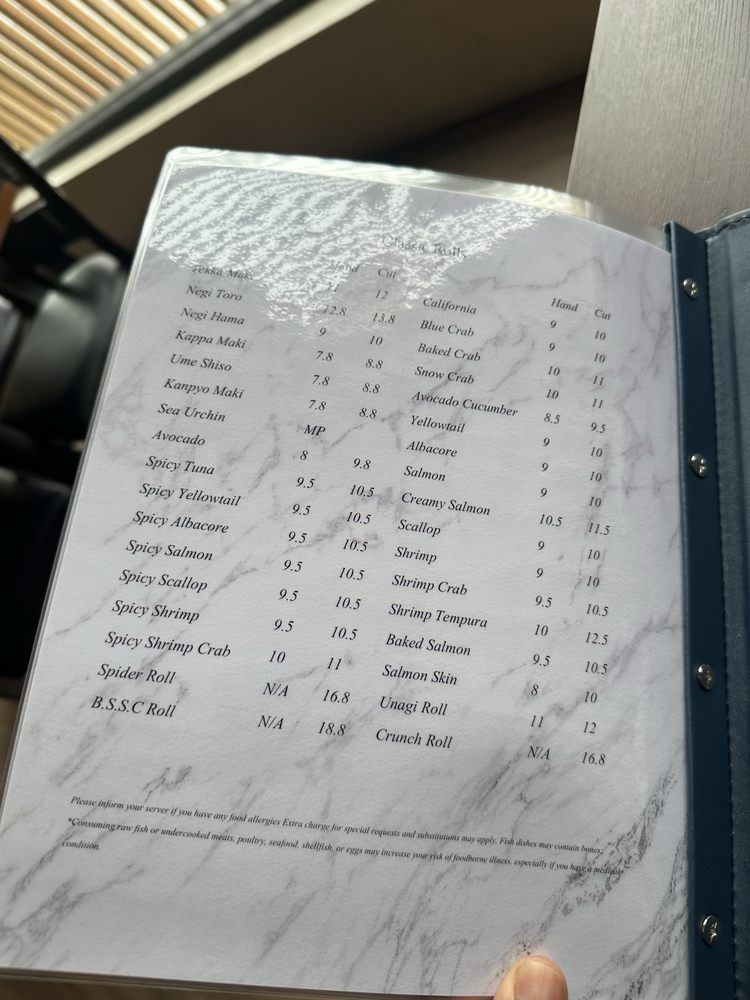 Classic Rolls
Hand Cut
Tekka Maki 11 12
Negi Toro 12.8 13.8
Negi Hama 9 10
Kappa Maki 7.8 8.8
Ume Shiso 7.8 8.8
Kanpyo Maki 7.8 8.8
Sea Urchin MP
Avocado 8 9.8
Spicy Tuna 9.5 10.5
Spicy Yellowtail 9.5 10.5
Spicy Albacore 9.5 10.5
Spicy Salmon 9.5 10.5
Spicy Scallop 9.5 10.5
Spicy Shrimp 9.5 10.5
Spicy Shrimp Crab 10 11
Spider Roll N/A 16.8
B.S.S.C Roll N/A 18.8
Hand Cut
California 9 10
Blue Crab 9 10
Baked Crab 10 11
Snow Crab 10 11
Avocado Cucumber 8.5 9.5
Yellowtail 9 10
Albacore 9 10
Salmon 9 10
Creamy Salmon 10.5 11.5
Scallop 9 10
Shrimp 9 10
Shrimp Crab 9.5 10.5
Shrimp Tempura 10 12.5
Baked Salmon 9.5 10.5
Salmon Skin 8 10
Unagi Roll 11 12
Crunch Roll N/A 16.8
Please inform your server if you have any food allergies Extra charge for special requests and substitutions may apply. Fish dishes may contain bones.
*Consuming raw fish or undercooked meats, poultry, seafood, shellfish, or eggs may increase your risk of foodborne illness, especially if you have a medical
condition.